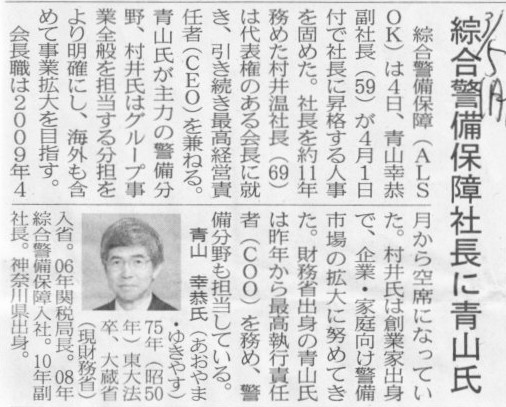 綜合警備保障社長に青山氏
3/5
綜合警備保障（ALS
OK）は4日、青山幸恭
副社長（59）が4月1日
付で社長に昇格する人事
を固めた。社長を約11年
務めた村井温社長（69）
は代表権のある会長に就
き、引き続き最高経営責
任者（CEO）を兼ねる。
青山氏が主力の警備分
野、村井氏はグループ事
業全般を担当する分担を
より明確にし、海外も含
めて事業拡大を目指す。
会長職は2009年4
月から空席になってい
た。村井氏は創業家出身
で、企業・家庭向け警備
市場の拡大に努めてき
た。財務省出身の青山氏
は昨年から最高執行責任
者（COO）を務め、警
備分野も担当している。
青山 幸恭氏（あおやま
・ゆきやす）
75年（昭50
年）東大法
卒、大蔵省
（現財務省）
入省。06年関税局長。08年
綜合警備保障入社。10年副
社長。神奈川県出身。